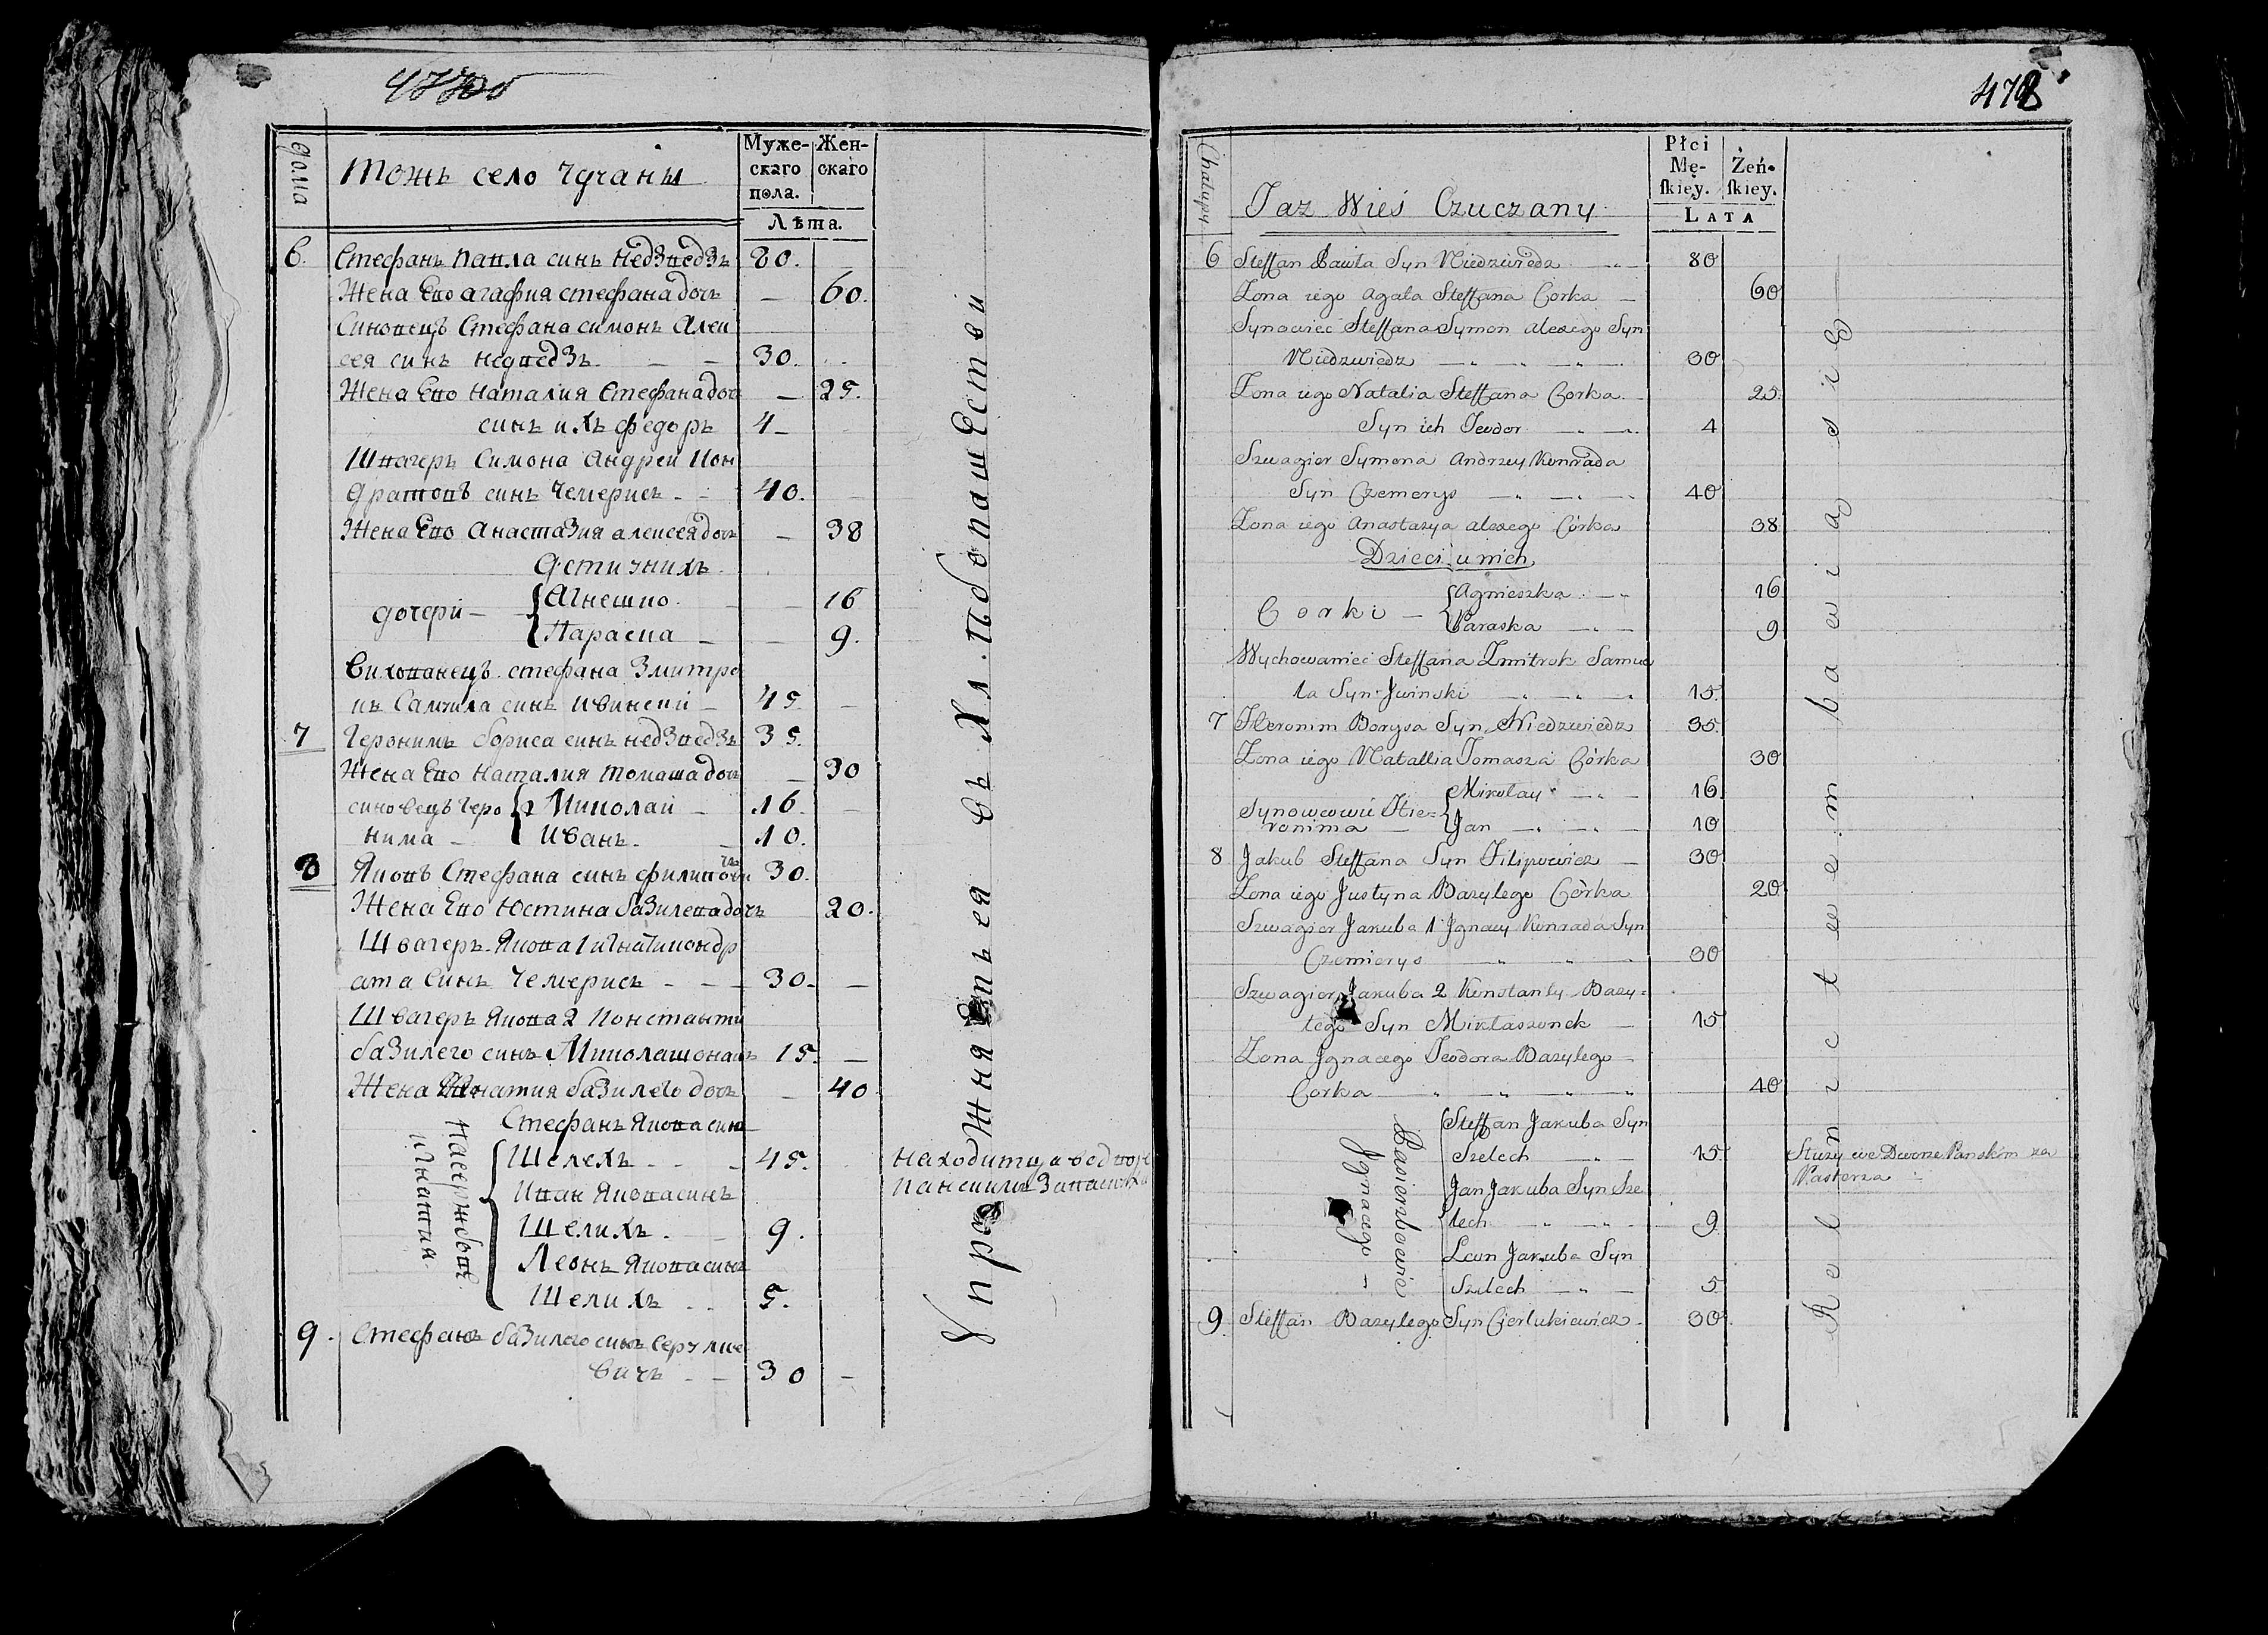 дома
Тожъ село Чучаны
Муже-
скаго
пола.
Жен-
скаго
Лѣта.
6. Стефанъ Павла синъ Недзведзь 80.
Жена Его Агафия Стефана дочь — 60.
Синовецъ Стефана Симонъ Алек
сея синъ Недведзь — — 30.
Жена Его Наталия Стефана доч — 25.
синъ ихъ Федоръ 4 —
Швагеръ Симона Андрей Кон
дратовъ синъ Чемерисъ — 40. —
Жена Его Анастазия Алексея дочь — 38
Дети у нихъ
дочери — { Агнешко. — 16
Параска — — 9.
Виховнецъ Стефана Змитро
къ Самуила синъ Ивинский — 15 —
7 Геронимъ Бориса синъ Недзведзь 35.
Жена Его Наталия Томаша дочь — 30
синовецъ Геро { Миколай — 16. —
нима — Иванъ. — 10.
8 Яковъ Стефана синъ Филипович 30.
Жена Его Юстина Базилева дочь 20.
Швагеръ Якова 1 Игнатий Кондр
ата синъ Чемерисъ — — — 30. —
Швагеръ Якова 2 Константи
Базилего синъ Миколашонакъ 15. —
Жена Игнатия Базилего дочь — 40
Пасержбове
Игнатия.
Стефанъ Якова синъ
Шелехъ — — 15.
Находитца в Дворе
Панскимъ за пастыха
Иван Якова синъ
Шелихъ. — 9.
Леонъ Якова синъ
Шелихъ . . 5.
9. Стефанъ Базилего синъ Серлуке
вичъ — — 30 —
Упражняется въ Хлебопашестви
478
Chałupy
Taz Wieś Czuczany
Płci
Mę-
skiey.
Żeń-
skiey.
LATA
6 Steffan Pawła Syn Niedzwiedz — 80
Zona iego Agata Steffana Corka — 60
Synowiec Steffana Symon Alexego Syn
Niedzwiedz — „ — „ — 30
Zona iego Natalia Steffana Corka — 25.
Syn ich Teodor — „ — 4
Szwagier Symona Andrzey Konrada
Syn Czemerys — „ — „ — 40
Zona iego Anastazya Alexego Córka 38
Dzieci u nich
Corki — { Agnieszka — „ 16
Paraska — „ — 9
Wychowaniec Steffana Zmitrok Samue
la Syn Jwinski — „ — „ 15.
7 Hieronim Borysa Syn Niedzwiedz 35.
Zona iego Natallia Tomasza Córka 30
Synowcowie Hie=
ronima — { Mikołay — „ — 16.
Jan — „ — „ — 10
8 Jakub Steffana Syn Filipowicz — 30
Zona iego Justyna Bazylego Córka 20
Szwagier Jakuba 1 Jgnacy Konrada Syn
Czemierys — „ — 30
Szwagier Jakuba 2 Konstanty Bazy=
lego Syn Mikłaszonek — 15
Zona Jgnacego Teodora Bazylego —
Corka — „ „ „ „ 40
Pasierzbowie
Jgnacego —
Steffan Jakuba Syn
Szelech — „ — 15.
Służy we Dworze Panskim za
Pasterza
Jan Jakuba Syn Sze
lech — „ — „ — 9.
Leon Jakuba Syn
Szelech — „ — 5
9. Steffan Bazylego Syn Cierlukiewicz — 30
Rolnictwem bawią się